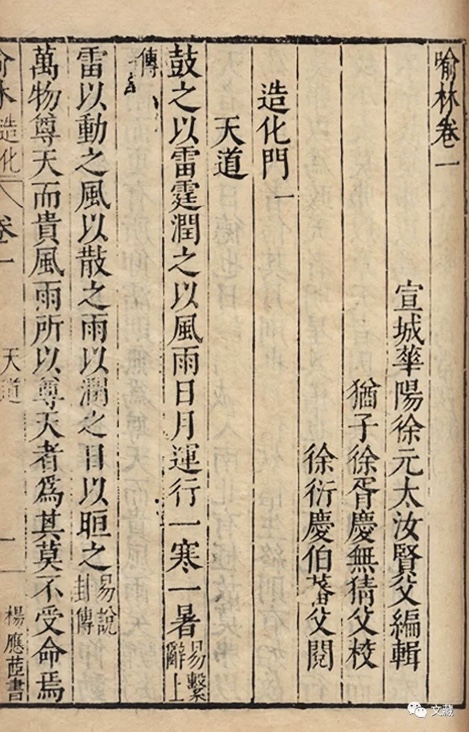 喻林卷一
宣城華陽徐元太汝賢父編輯
猶子徐胥慶無猜父校
徐衍慶伯蕃父閱
造化門一
天道
鼓之以雷霆潤之以風雨日月運行一寒一暑易繫辭上
傳
雷以動之風以散之雨以潤之日以晅之易說卦傳
萬物尊天而貴風雨所以尊天者爲其莫不受命焉
喻林 造化 卷一 天道 一 楊應書
文藏